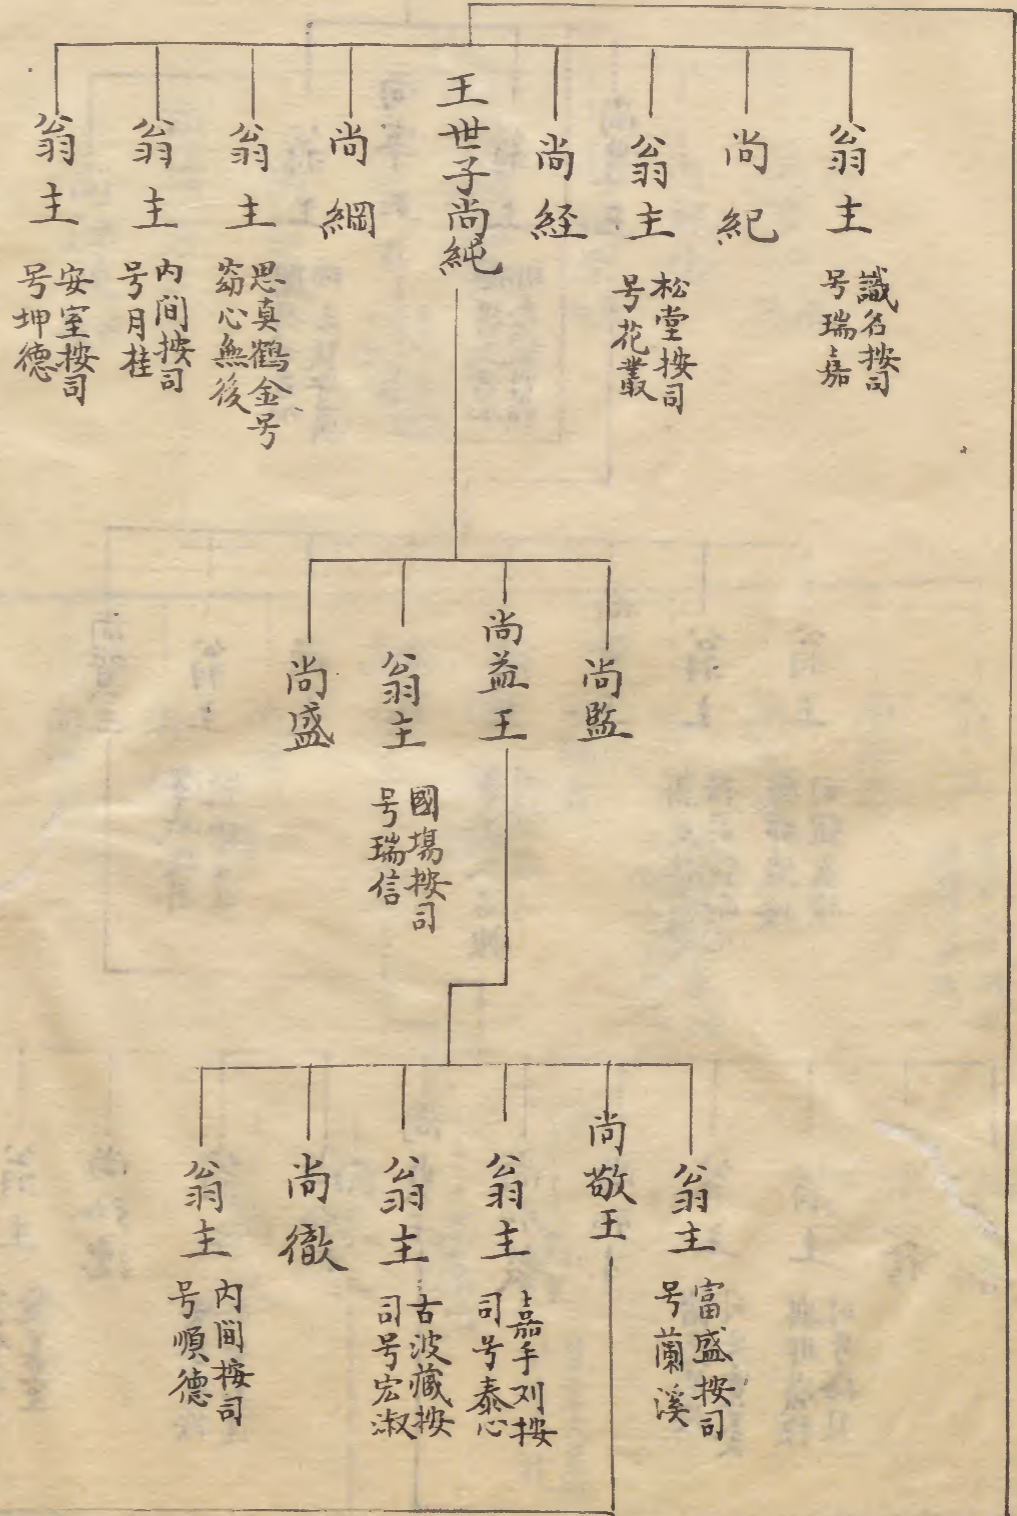 翁主
識名按司
号瑞嘉
尚紀
翁主
松堂按司
号花叢
尚経
王世子尚純
尚綱
翁主
思真鶴金号
窈心無後
翁主
内间按司
号月桂
翁主
安室按司
号坤德
尚監
尚益王
翁主
國塲按司
号瑞信
尚盛
翁主
富盛按司
号蘭溪
尚敬王
翁主
嘉手刈按
司号泰心
翁主
古波藏按
司号宏淑
尚徹
翁主
内间按司
号順德